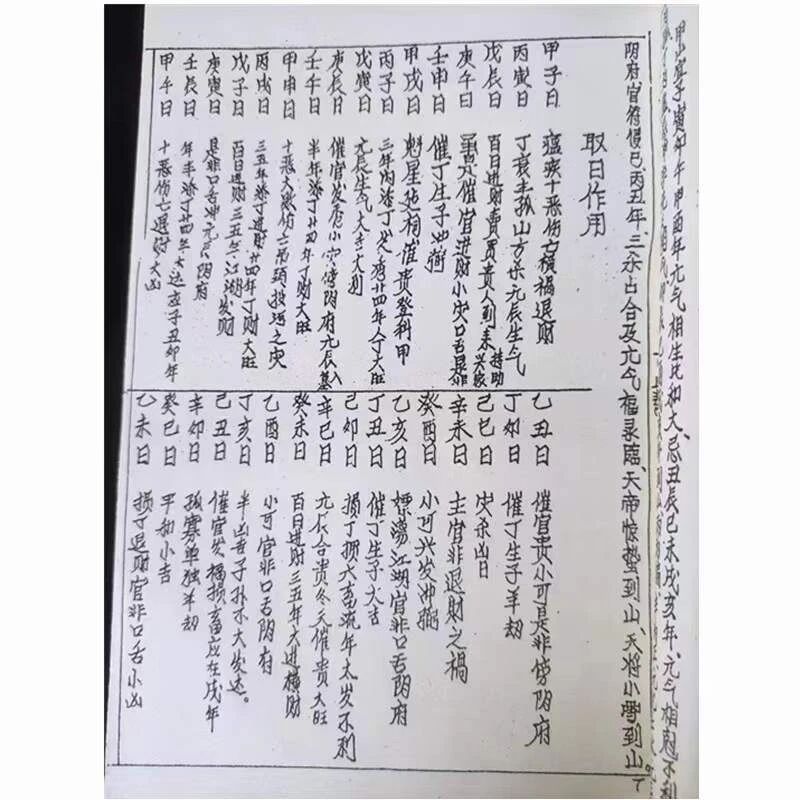 甲山宜子寅卯午甲酉年元气相生比和大忌丑辰巳未戌亥年元气相克不利
阴府官符侵巳丙丑年三杀占合及元气福录临天帝惊蛰到山天将小雪到山
取日作用
甲子日 瘟疾十恶伤亡横祸退财
丙寅日 丁衰主孤山方乐元辰生气
戊辰日 百日进财卖买贵人到来兴家扶助
庚午日 催官进财小灾口舌是非
壬申日 催丁生子冲弼
甲戌日 魁星拖相催贵登科甲
丙子日 三年内添丁发秀廿四年人丁大旺
戊寅日 元辰生气大吉大利
庚辰日 催官发居小灾傍阴府元辰入墓
壬午日 半年添丁廿四年丁财大旺
甲申日 十恶大败伤亡吊颈投河之灾
丙戌日 三五年添丁进财廿四年丁财大旺
戊子日 百日进财三五年江湖发财
庚寅日 是非口舌冲元辰阴府
壬辰日 年半添丁廿四年大达应子丑卯年
甲午日 十恶伤亡退财大凶
乙丑日 催官贵小可是非傍阴府
丁卯日 催丁生子羊刼
己巳日 灾杀凶日
辛未日 主官非退财之祸
癸酉日 小可兴发冲弼
乙亥日 嫖荡江湖官非口舌阴府
丁丑日 催丁生子大吉
己卯日 损丁损六畜流年太岁不利
辛巳日 元辰合贵冬天催贵大旺
癸未日 百日进财三五年大进横财
乙酉日 小可官非口舌阴府
丁亥日 半凶吉子孙不大发达。
己丑日 催官发福损畜应在戌年
辛卯日 孤寡单独羊刼
癸巳日 平和小吉
乙未日 损丁退财官非口舌小凶